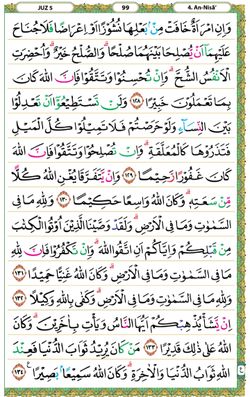 JUZ 5 99 4. An-Nisā'
وَاِنِ امْرَاَةٌ خَافَتْ مِنْۢ بَعْلِهَا نُشُوْزًا اَوْ اِعْرَاضًا فَلَا جُنَاحَ
عَلَيْهِمَآ اَنْ يُّصْلِحَا بَيْنَهُمَا صُلْحًا ۗ وَالصُّلْحُ خَيْرٌ ۗ وَاُحْضِرَتِ
الْاَنْفُسُ الشُّحَّ ۗ وَاِنْ تُحْسِنُوْا وَتَتَّقُوْا فَاِنَّ اللّٰهَ كَانَ
بِمَا تَعْمَلُوْنَ خَبِيْرًا ١٢٨ وَلَنْ تَسْتَطِيْعُوْٓا اَنْ تَعْدِلُوْا
بَيْنَ النِّسَاۤءِ وَلَوْ حَرَصْتُمْ فَلَا تَمِيْلُوْا كُلَّ الْمَيْلِ
فَتَذَرُوْهَا كَالْمُعَلَّقَةِ ۗ وَاِنْ تُصْلِحُوْا وَتَتَّقُوْا فَاِنَّ اللّٰهَ
كَانَ غَفُوْرًا رَّحِيْمًا ١٢٩ وَاِنْ يَّتَفَرَّقَا يُغْنِ اللّٰهُ كُلًّا
مِّنْ سَعَتِهٖ ۗ وَكَانَ اللّٰهُ وَاسِعًا حَكِيْمًا ١٣٠ وَلِلّٰهِ مَا فِى
السَّمٰوٰتِ وَمَا فِى الْاَرْضِ ۗ وَلَقَدْ وَصَّيْنَا الَّذِيْنَ اُوْتُوا الْكِتٰبَ
مِنْ قَبْلِكُمْ وَاِيَّاكُمْ اَنِ اتَّقُوا اللّٰهَ ۗ وَاِنْ تَكْفُرُوْا فَاِنَّ لِلّٰهِ
مَا فِى السَّمٰوٰتِ وَمَا فِى الْاَرْضِ ۗ وَكَانَ اللّٰهُ غَنِيًّا حَمِيْدًا ١٣١
وَلِلّٰهِ مَا فِى السَّمٰوٰتِ وَمَا فِى الْاَرْضِ ۗ وَكَفٰى بِاللّٰهِ وَكِيْلًا ١٣٢
اِنْ يَّشَأْ يُذْهِبْكُمْ اَيُّهَا النَّاسُ وَيَأْتِ بِاٰخَرِيْنَ ۗ وَكَانَ
اللّٰهُ عَلٰى ذٰلِكَ قَدِيْرًا ١٣٣ مَنْ كَانَ يُرِيْدُ ثَوَابَ الدُّنْيَا فَعِنْدَ
اللّٰهِ ثَوَابُ الدُّنْيَا وَالْاٰخِرَةِ ۗ وَكَانَ اللّٰهُ سَمِيْعًاۢ بَصِيْرًا ١٣٤